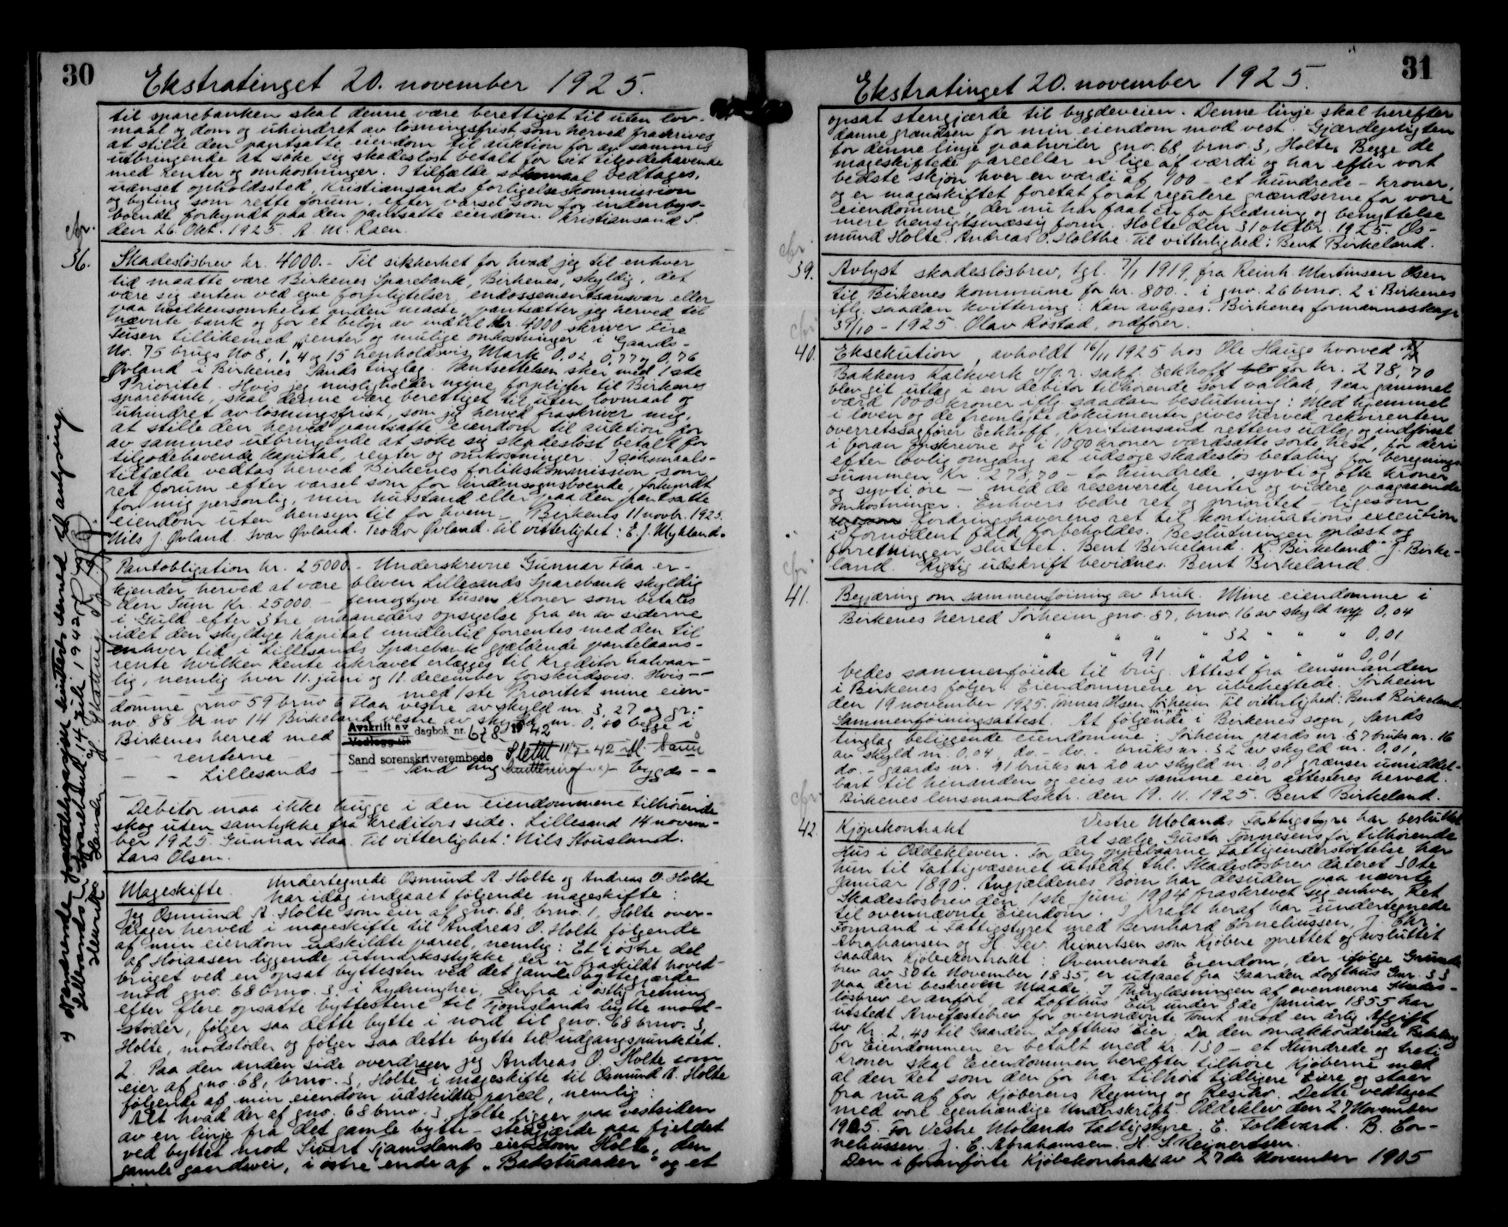 30
Ekstratinget 20. november 1925.
til sparebanken skal denne være berettiget til uten lov-
maal og dom og uhindret av løsningsfrist som herved fraskrives
at stille den pantsatte eiendom til auktion for av sammes
utbringende at søke sig skadesløst betalt for sit tilgodehavende
med renter og omkostninger. I tilfælde søksmaal vedtages,
uanset opholdssted, Kristiansands forligelseskommission
og byting som rette forum, efter varsel som for indenbys-
boende forkyndt paa den pantsatte eiendom. Kristiansand S
den 26 Okt. 1925. A. M. Raen.
36.
Skadesløsbrev kr. 4000.- Til sikkerhet for hvad jeg til enhver
tid maatte være Birkenes Sparebank, Birkenes, skyldig, det
være sig enten ved egne forpligtelser, endossementsansvar eller
paa hvilkensomhelst anden maate, pantsætter jeg herved til
nævnte bank og for et beløp av indtil kr. 4000 skriver fire
tusen tillikemed renter og mulige omkostninger i Gaards-
No. 75 brugs No 8, 1, 4 og 15 henholdsvis Mark 0,02, 0,77 og 0,76
Øvland i Birkenes Sands tinglag. Pantsettelsen sker med 1ste
Prioritet. Hvis jeg misligholder mine forpligter til Birkenes
sparebank, skal denne være berettiget til uten lovmaal og
uhindret av løsningsfrist, som jeg herved fraskriver mig,
at stille den herved pantsatte eiendom til auktion for
av sammes utbringende at søke sig skadesløst betalt for
tilgodehavende kapital, renter og omkostninger. I søksmaals-
tilfælde vedtas herved Birkenes forlikskommission som
ret forum efter varsel som for indensognsboende, forkyndt
for mig personlig, min husstand eller paa den pantsatte
eiendom uten hensyn til for hvem. Birkenes 11 novbr. 1925.
Nils J. Øvland. Ivar Øvland. Teodor Øvland. til vitterlighet: E. J. Mykland.
Pantobligation kr. 25000.- Underskrevne Gunnar Staa er-
kjender herved at være bleven Lillesands Sparebank skyldig
den sum Kr. 25000 - femogtyve tusen kroner som betales
i Guld efter 3 tre maaneders opsigelse fra en av siderne
idet den skyldige kapital imidlertid forrentes med den til
enhver tid i Lillesands Sparebank gjældende pantelaans-
rente hvilken Rente ukrævet erlægges til kreditor halvaar-
lig, nemlig hver 11. juni og 11. december forskudsvis. Hvis -
med 1ste Prioritet mine eien-
domme gno 59 brno 6 Staa vestre av skyld m. 3,27 og gr.
no 88 br no 14 Birkeland vestre av skyld m. 0,40 begge i
Birkenes herred med
Avskrift av dagbok nr. 678 1942
Vedlegg til
Sand sorenskriverembede Slettet 11/7-42
- renterne -
- Lillesands - - Sand ting - bygds - -
Debitor maa ikke hugge i den eiendommene tilhørende
skog uten samtykke fra kreditors side. Lillesand 14 novem-
ber 1925. Gunnar Staa. Til vitterlighet: Nils Housland.
Lars Olsen.
Mageskifte. Undertegnede Osmund A. Holte og Andreas O. Holte
har idag indgaaet følgende mageskifte:
Jeg Osmund A. Holte som eier af gno. 68, brno. 1, Holte over-
drager herved i mageskifte til Andreas O. Holte følgende
af min eiendom udskildte parcel, nemlig: Et i østre del
af Hoiaasen liggende udmarksstykke, der er fraskildt hoved-
bruget ved en opsat byttesten ved det gamle byttegjærde
mod gno. 68 brno. 3, i Rydningher, derfra i østlig retning
efter flere opsatte byttestene til Tjomslands bytte mod-
stoder, følger saa dette bytte i nord til gno. 68 brno. 3,
Holte, modstoder og følger saa dette bytte til udgangspunktet.
2. Paa den anden side overdrager jeg Andreas O. Holte som
eier af gno. 68, brno. 3, Holte i mageskifte til Osmund A. Holte
følgende af min eiendom udskildte parcel, nemlig:
Alt hvad der af gno. 68 brno. 3 Holte ligger paa vestsiden
av en linje fra det gamle bytte - stengjærde paa fjeldet
ved byttet mod Sivert Tjamslands eiendom Holte, den
gamle gaardsvei, i østre ende af "Bakstuaaker" og et
Nærværende pantobligasjon kvitteres herved til avlysning
Lillesands Sparebank 14 juli 1942.
31
Ekstratinget 20. november 1925.
opsat stengjærde til bygdeveien. Denne linje skal herefter
danne grændsen for min eiendom mod vest. Gjærdepligten
for denne linje paahviler gno. 68 brno. 3, Holte. Begge de
mageskiftede parceller er lige af værdi og har efter vort
bedste skjøn hver en værdi af 100 - et hundrede - kroner,
og er mageskiftet foretat forat regulere grændserne for vore
eiendomme, der nu har faat en for fredning og benyttelse
mere hensigtsmæssig form. Holte den 31 oktbr. 1925. Os-
mund Holte. Andreas O. Holthe. Til vitterlighed: Bent Birkeland.
39.
Avlyst skadesløsbrev, tgl. 7/1 1919, fra Reinh. Martinsen Olsen
til Birkenes kommune for kr. 800. i gno. 26 brno. 2 i Birkenes
iflg. saadan kvittering: Kan avlyses. Birkenes formannsskap
31/10 - 1925. Olav Rostad, ordfører.
40.
Eksekution, avholdt 16/11 1925 hos Ole Hauge hvorved A/S
Bakkens Kalkverk v/o.r. sakf. Eckhoff for kr. 278,70
blev git utlæg i en debitor tilhørende sort vallak, 9 aar gammel
værd 1000 kroner iflg. saadan beslutning: Med hjemmel
i loven og de fremlagte dokumenter gives herved rekvirenten
overretssagfører Eckhoff, Kristiansand rettens udlæg og indførsel
i foran opskrevne og i 1000 kroner værdsatte sorte hest, for deri
efter lovlig omgang at udsøge skadesløs betaling for beregnings-
summen Kr. 278,70 - to hundrede, sytti og otte kroner
og sytti øre - med de reserverede renter og videre paagaaende
omkostninger. Enhvers bedre ret og prioritet ligesom
fordringshaverens ret til kontinuations execution
i fornødent fald forbeholdes. Beslutningen oplæst og
forretningen sluttet. Bent Birkeland. K. Birkeland. J. Birke-
land. Rigtig udskrift bevidnes. Bent Birkeland.
41.
Begjæring om sammenføining av bruk. Mine eiendomme i
Birkenes herred Torheim gno. 87, brno. 16 av skyld mrk 0,04
" " " " 32 " " " 0,01
" " 91 " 20 " " " 0,01
bedes sammenføiede til brug. Attest fra lensmanden
i Birkenes følger. Eiendommene er ubeheftede. Torheim
den 19 november 1925. Tønnes Olsen Torheim. Til vitterlighed: Bent Birkeland.
Sammenføiningsattest. At følgende i Birkenes sogn, Sands
tinglag beliggende eiendomme: Torheim gaards nr. 87 bruks nr. 16
av skyld m. 0,04, do. - do. - bruks nr. 32 av skyld m. 0,01,
do. - gaards nr. 91 bruks nr 20 av skyld m. 0,01 grænser umiddel-
bart til hinanden og eies av samme eier attesteres herved.
Birkenes lensmandsktr. den 19. 11. 1925. Bent Birkeland.
42.
Kjøpekontrakt Vestre Molands Fattigstyre har besluttet
at sælge Gusta Tønnesens før tilhørende
Hus i Oddekleven. For den oppebaarne Fattigunderstøttelse har
hun til Fattigvæsenet utstedt thl. Skadesløsbrev dateret 30te
Januar 1890. Angjældenes Børn har desuden paa nævnte
Skadesløsbrev den 1ste Juni 1904 fraskrevet sig enhver Ret
til ovennævnte Eiendom. I Kraft heraf har undertegnede
Formand i Fattigstyret med Bernhard Corneliussen, J. Chr.
Abrahamsen og H. Sev. Reinertsen som Kjøbere oprettet og avsluttet
saadan Kjøbekontrakt: Ovennævnte Eiendom, der ifølge Grunde-
brev av 30te November 1835, er udgaaet fra Gaarden Lofthus Gnr. 33
paa deri beskreven Maade. I Thinglæsningen af ovennævnte Skades-
løsbrev er anført, at Lofthus Eier under 8de Januar 1855 har
utstedt Arvefæstebrev for ovennævnte Tomt mod en årlig Afgift
av Kr. 2,40 til Gaarden Lofthus Eier. Da den omakkorderede Betaling
for Eiendommen er betalt med kr. 130 - et Hundrede og treti
Kroner skal Eiendommen herefter tilhøre Kjøberne med
al den Ret som den før har tilhørt tidligere Eiere og staar
fra nu af for Kjøbernes Regning og Risiko. Dette vedtaget
med vore egenhændige Underskrift. Oddeklev den 27 November
1905. For Vestre Molands Fattigstyre. E. Folkvard. B. Cor-
neliussen. J. C. Abrahamsen. H. S. Reinertsen.
Den i foranførte Kjøbekontrakt av 27de November 1905